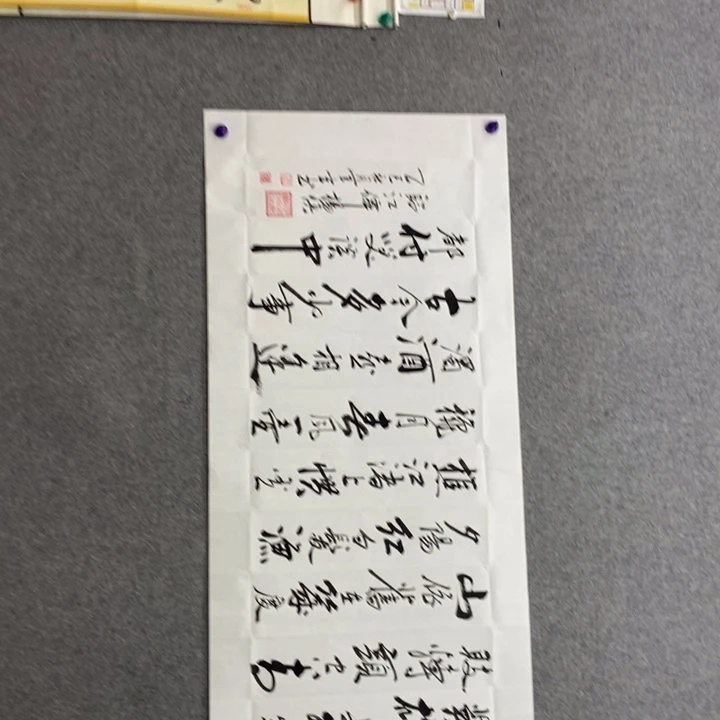 敗轉頭空青
山依舊在幾度
夕陽紅白髮漁
樵江渚上慣看
秋月春風一壺
濁酒喜相逢
古今多少事
都付笑談中
臨江仙 楊慎
乙巳